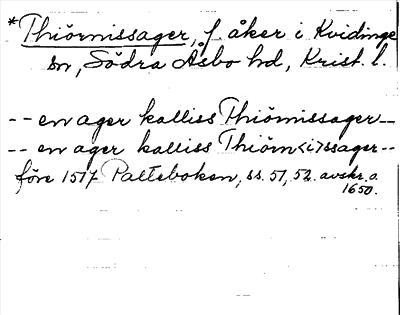 *Thiörnissager, f. åker i Kvidinge
sn, Södra Åsbo hd, Krist. l.
-- en ager kalliss Thiörnissager --
-- en ager kalliss Thiörn<i>ssager --
före 1517 Palteboken, ss. 51, 52. avskr. o.
1650.